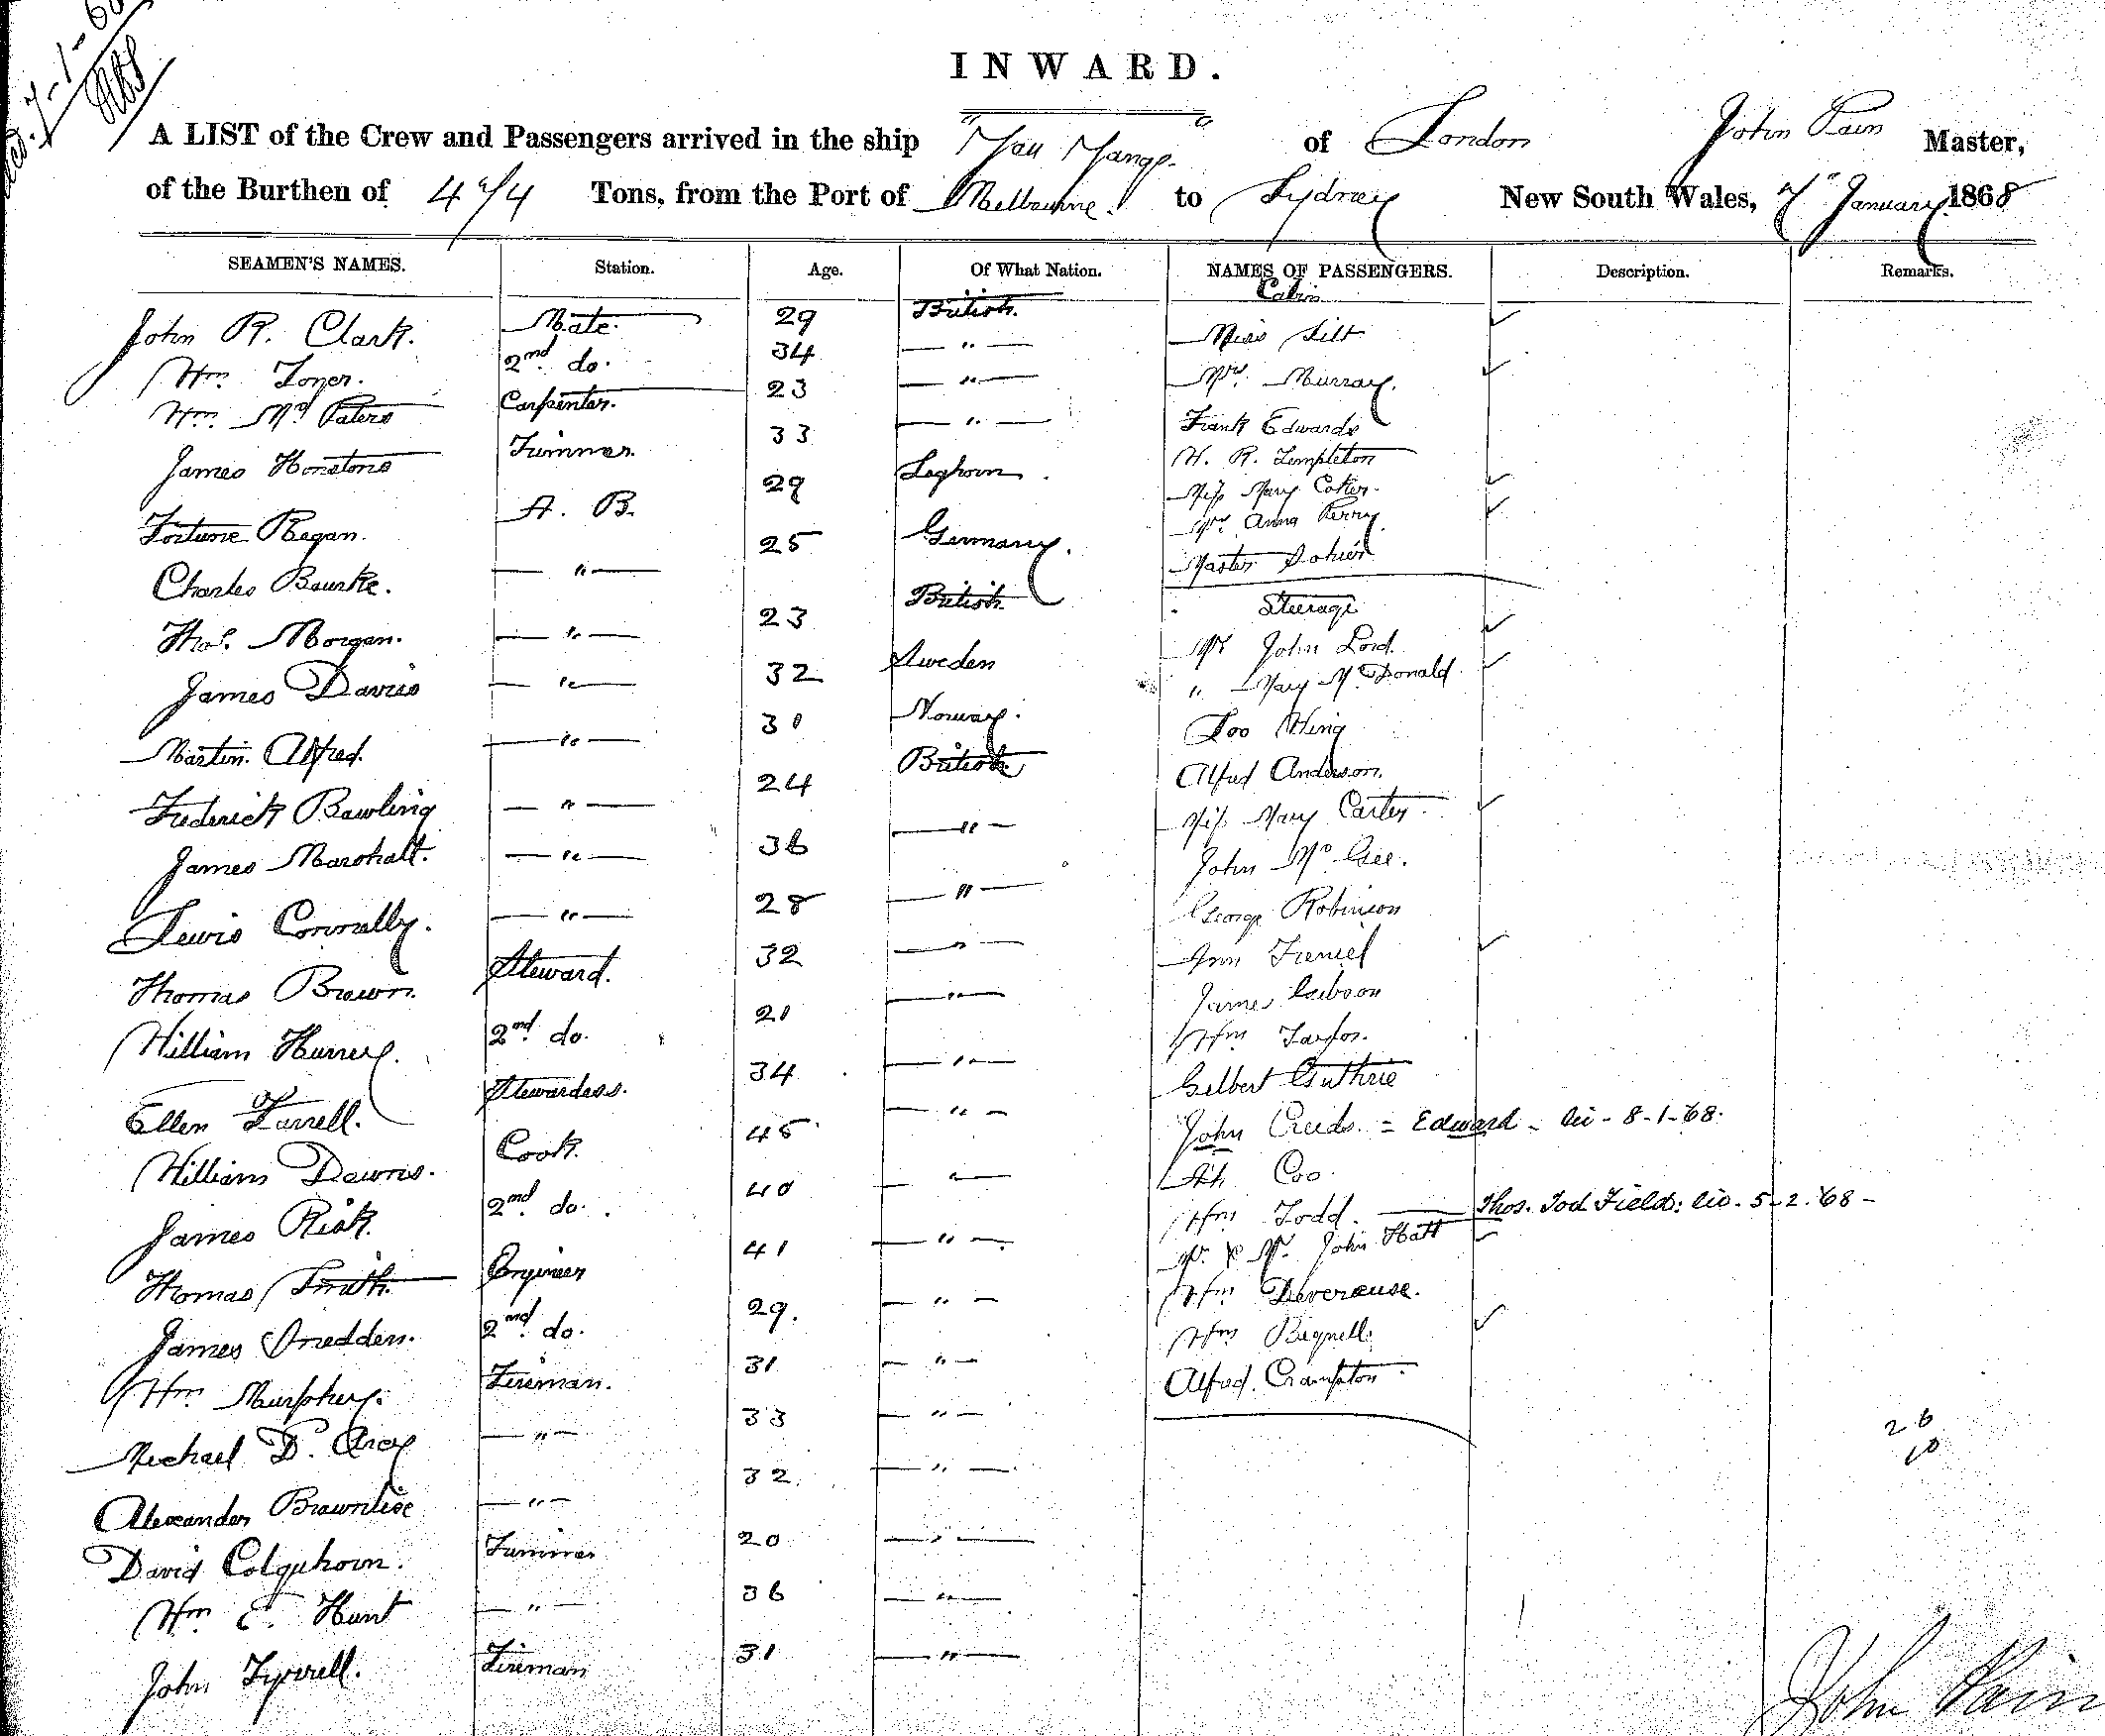 INWARD.
A LIST of the Crew and Passengers arrived in the ship "You Yangs" of London John Pain Master,
of the Burthen of 474 Tons, from the Port of Melbourne to Sydney New South Wales, 7th January 1868
SEAMEN'S NAMES. Station. Age. Of What Nation. NAMES OF PASSENGERS. Description. Remarks.
Cabin
John R. Clark. Mate. 29 British. Miss
Wm. Toner. 2nd do. 34 " Mrs. Murray.
Wm. Carpenter. 23 " Frank Edwards
James Trimmer 33 " W. R. Templeton
Fortune Regan. A. B. 29 Leghorn. Miss Mary
Mrs. Anna Perry
Charles Bourke. " 25 Germany. Master
Steerage
Thos. Morgan. " 23 British. John Lord.
James Davis " 32 Sweden " Mary McDonald.
Martin Alfred. " 30 Norway. Loo Hing
Frederick Bowling " 24 British Alfred Anderson.
James Marshall. " 36 " Miss Mary Carter.
John McGee.
Lewis Connelly. " 28 " George Robinson
Thomas Brown. Steward. 32 " Ann
James Gibson
William Hurrey. 2nd do. 21 " Wm Taylor.
Ellen Farrell. Stewardess. 34 " Gilbert Guthrie
William Downs. Cook. 45 " John Creeds. = Edward - 8-1-68.
Ah Coo.
James Risk. 2nd do. 40 " Wm Todd. Thos. Tod Field: 5-2.'68-
Mr & Mrs. John Hatt
Thomas Smith. Engineer 41 " Wm Deverause.
James Snedden. 2nd do. 29. " Wm Bagnell.
Wm Murphey. Fireman. 31 " Alfred. Crampton.
Michael D'Arcy " 33 "
26
10
Alexander Brownlise " 32 "
David Colquhoun. Trimmer 20 "
Wm E. Hunt " 36 "
John Tyrrell. Fireman 31 "
John Pain